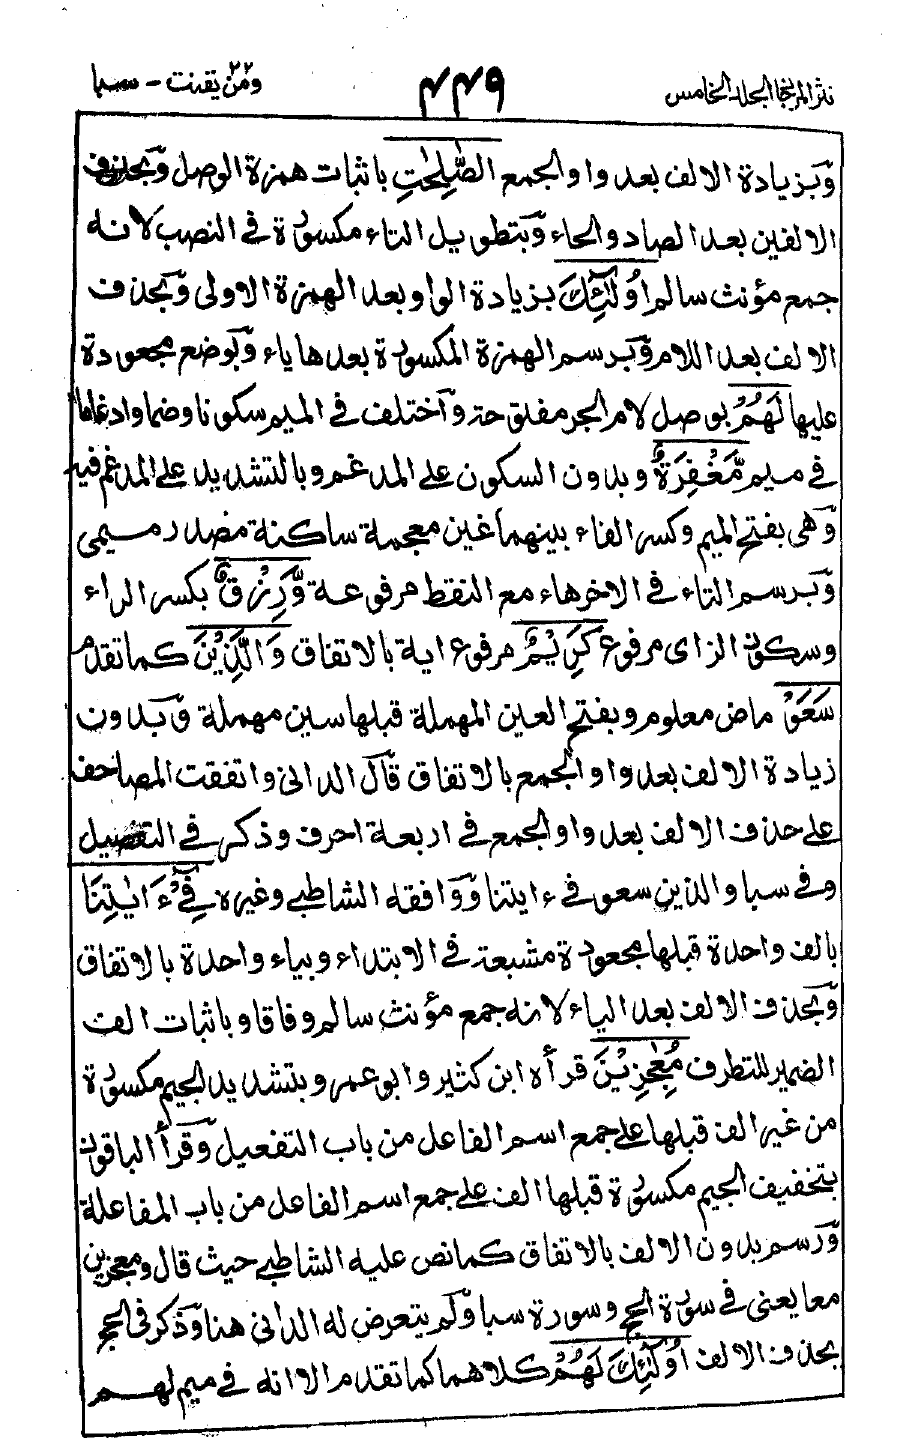 نثر المرجان المجلد الخامس
٤٤٩
ومن يقنت ٢٢ - سبا
وبزيادة الالف بعد واو الجمع الصّٰلِحٰتِ باثبات همزة الوصل وبحذف
الالفين بعد الصاد والحاء وبتطويل التاء مكسورة في النصب لانه
جمع مؤنث سالم اُولٰٓئِكَ بزيادة الواو بعد الهمزة الاولى وبحذف
الالف بعد اللام وبرسم الهمزة المكسورة بعدها ياء وبوضع مجعودة
عليها لَهُمْ بوصل لام الجر مفلوحة واختلف في الميم سكونا وضما وادغاما
في ميم مَّغْفِرَةٌ وبدون السكون على المدغم وبالتشديد على المدغم فيه
وهي بفتح الميم وكسر الفاء بينهما غين معجمة ساكنة مصدر ميمى
وبرسم التاء في الاخرهاء مع النقط مرفوعة وَّرِزْقٌ بكسر الراء
وسكون الزاى مرفوع كَرِيْمٌ مرفوع اية بالاتفاق وَالَّذِيْنَ كما تقدم
سَعَوْ ماض معلوم وبفتح العين المهملة قبلها سين مهملة وبدون
زيادة الالف بعد واو الجمع بالاتفاق قال الدانى واتفقت المصاحف
على حذف الالف بعد واو الجمع في اربعة احرف وذكر في التفصيل
وفي سبا والذين سعو في ءايتنا ووافقه الشاطبي وغيره فِيْٓ ءَايٰتِنَا
بالف واحدة قبلها مجعودة مشبعة في الابتداء وبياء واحدة بالاتفاق
وبحذف الالف بعد الياء لانه جمع مؤنث سالم وفاقا وباثبات الف
الضمير للتطرف مُعٰجِزِيْنَ قرأه ابن كثير وابو عمرو بتشديد الجيم مكسورة
من غير الف قبلها على جمع اسم الفاعل من باب التفعيل وقرأ الباقون
بتخفيف الجيم مكسورة قبلها الف على جمع اسم الفاعل من باب المفاعلة
ورسم بدون الالف بالاتفاق كما نص عليه الشاطبي حيث قال ومعجزين
معا يعنى في سورة الحج وسورة سبا ولم يتعرض له الدانى هنا وذكر في الحج
بحذف الالف اُولٰٓئِكَ لَهُمْ كلاهما كما تقدم الا انه في ميم لهم